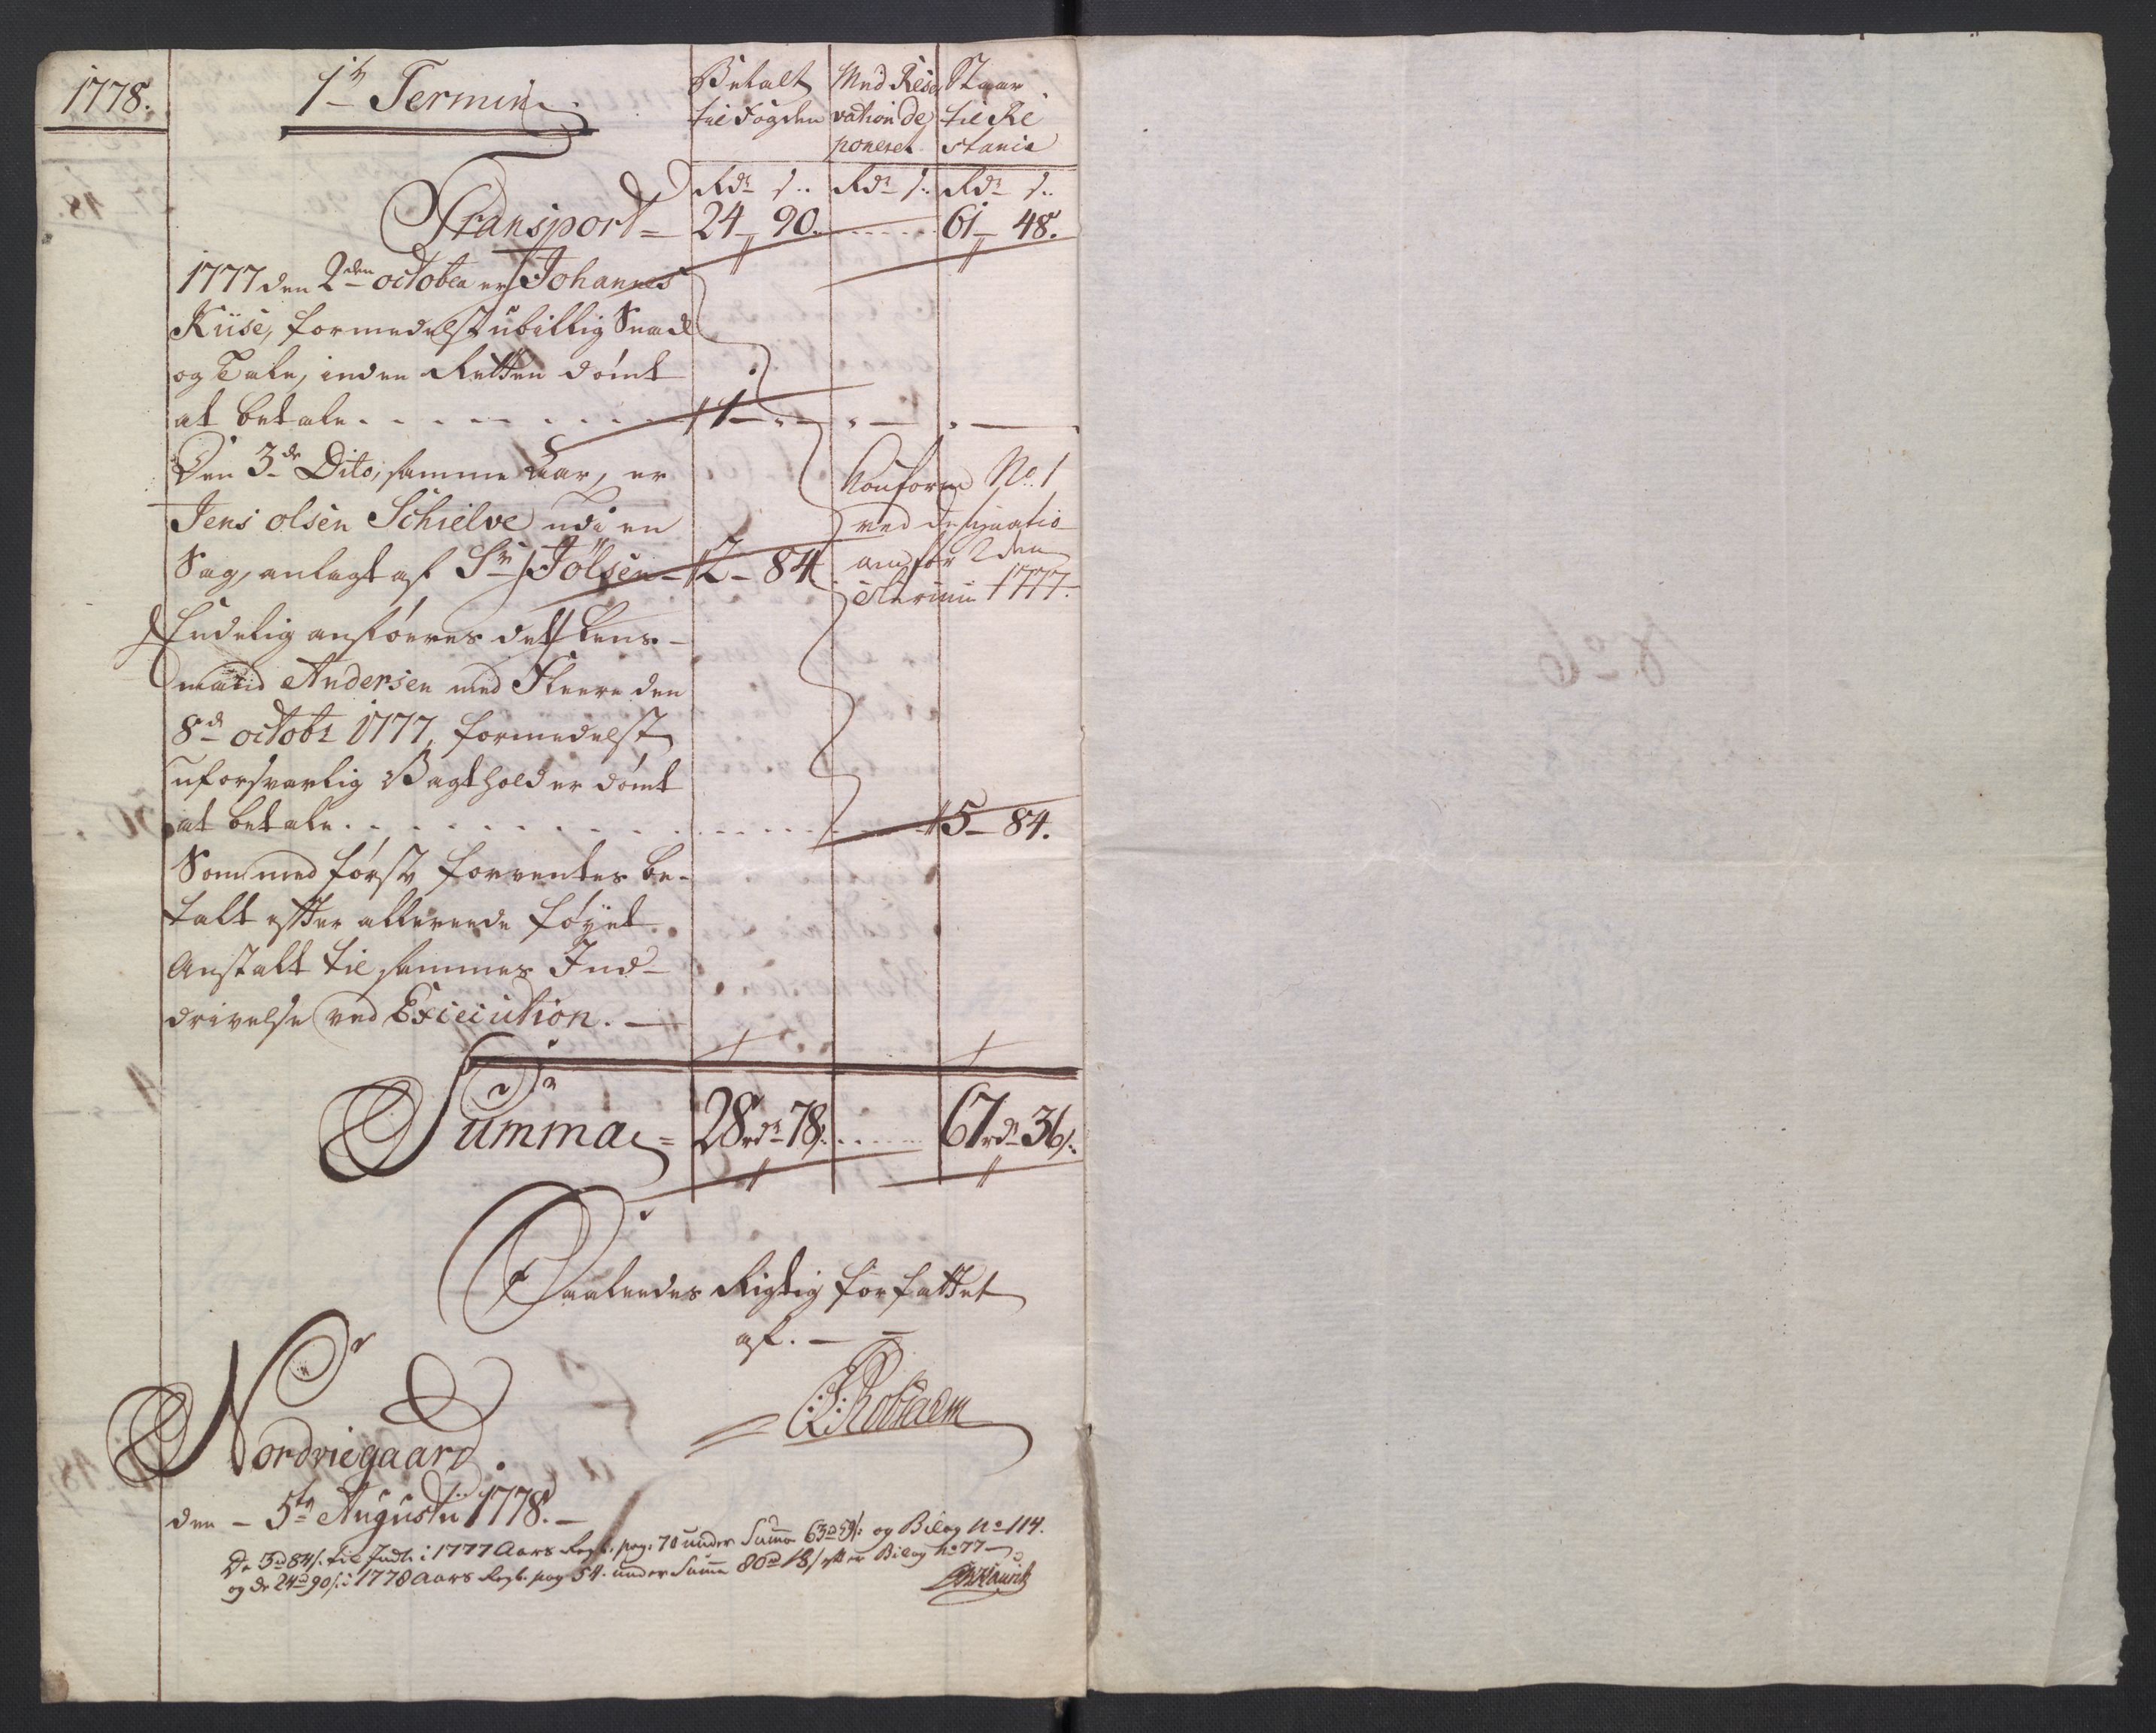 1778.
1te Termin
Betalt til Fogden
Med Reservation deponeret
Staar til Restance
Rdr s.. Rdr s.. Rdr s..
Transport = 24 - 90. ..... 61 - 48.
1777 den 2den octobr er Johannes
Kiise, formedelst ubillig Snack
og Tale, inden Retten dömt
at betale . . . . . . . . 1 - " - " - " -
Den 3de Dito, samme Aar, er
Jens olsen Schielve udi en
Sag, anlagt af Sr Jölsen - 2 - 84
Conform No. 1
ved designatio
nen for 2den
Termin 1777.
Endelig anföeres det Lens-
mand Andersen med Fleere den
8de octobr 1777, formedelst
uforsvarlig Vagthold er dömt
at betale . . . . . . . . . . 5 - 84.
Som med först forventes be-
talt efter allereede föyet
Anstalt til sammes Ind-
drivelse ved Execution. -
Summa = 28 rdr 78 s. ...... 67 rdr 36 s.
Saaleedes Rigtig forfattet
af. -
Nordviegaard.
den - 5te Augusti 1778. -
De 3rd 84 s. til Indt. i 1777 Aars Regk. pag: 70 under Summa 63rd 59 s: og Bilag No 114.
og de 24rd 90 s. i 1778 Aars Regk. pag 54. under Summa 80rd 18 s efter Bilag No 77